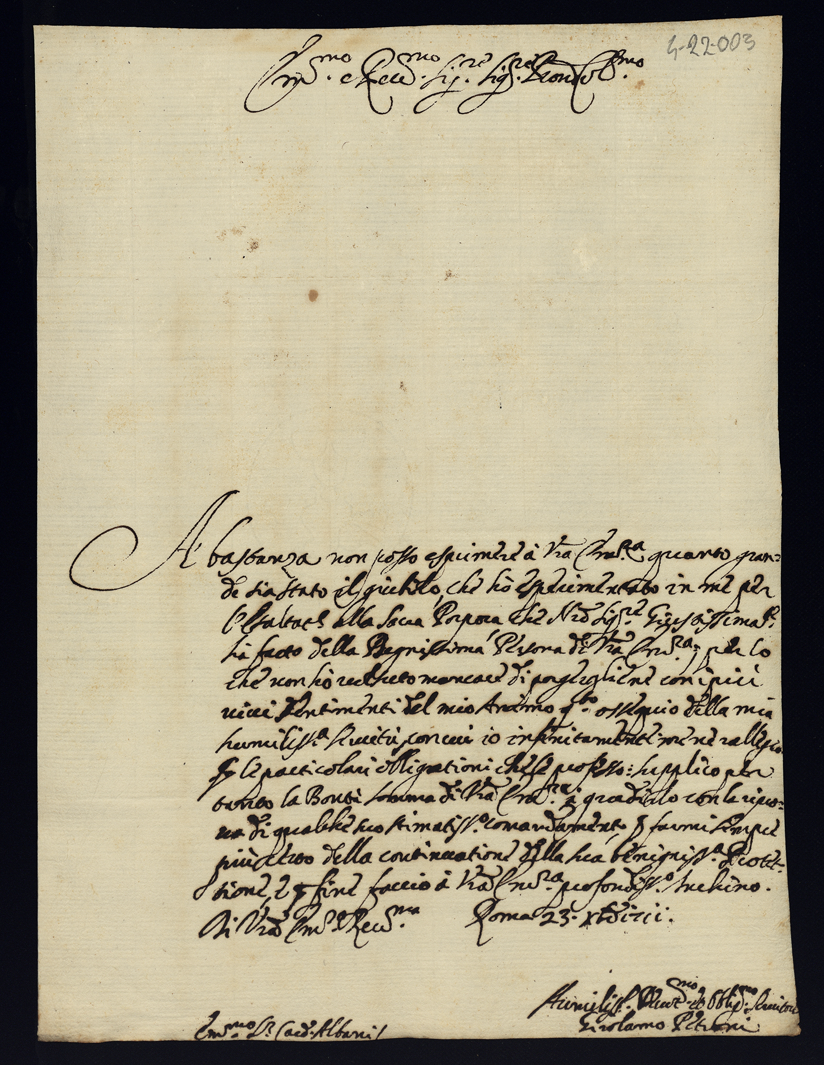 4-22-003
Em.mo e Rev.mo Sig.re Sig.re Pron Col.mo
A' bastanza non posso esprimere à V'ra Em.za quanto gran=
de sia stato il giubilo, che hò esperimentato in me per
alla Sacra Porpora che N'ro Sig.re
hà fatto della Degnissima Persona di V'ra Em.za; per lo
che non hò voluto mancare di porgegliene con i più
vivi sentimenti del mio Animo q.to ossequio della mia
humiliss.a servitù, con cui io infinitamente me ne rallegro
le particolari obligationi che le professo: supplico per
tanto la Bontà somma di V'ra Em.za à gradirlo con la
di qualche suo stimatiss.o comandamento, farmi sempre
più certo della continuatione della sua benigniss.a Protet=
tione, e fine faccio à V'ra Em.za profondiss.o inchino.
Di V'ra Em.za e Rev.ma Roma 23. Xbre 1711.
Humiliss.o Devot.mo et Oblig.mo Servitore
Girolamo
Em.mo S.r Card. Albani